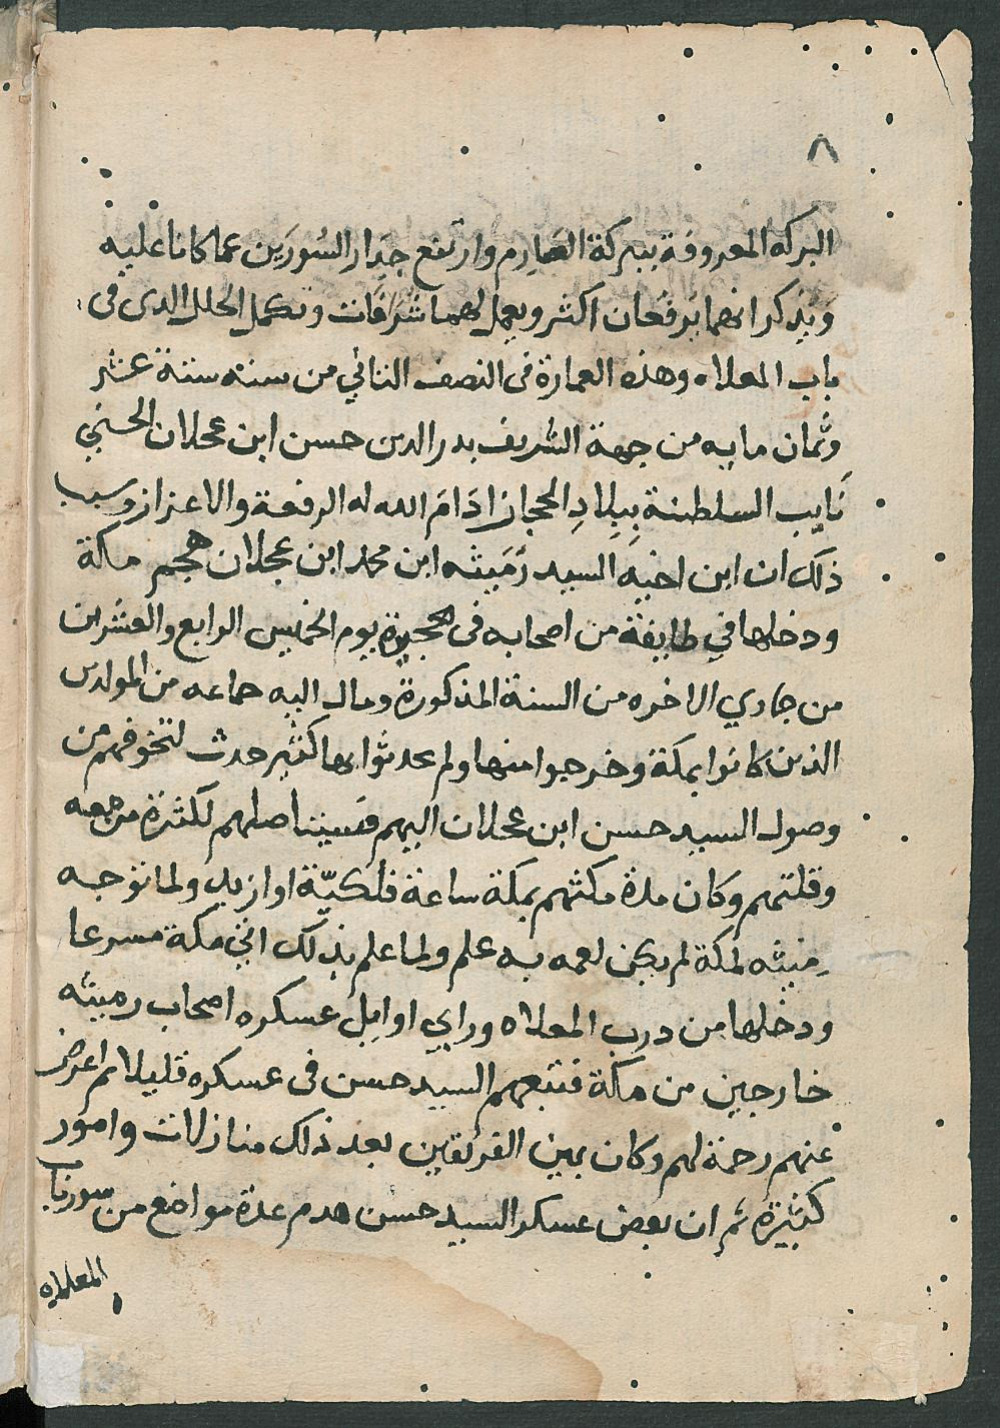 ٨
البركه المعروفة ببركة الصارم وارتفع جدار السورين عما كانا عليه
ويذكر انهما يرفعان اكثر ويعمل لهما شرافات وتكمل الخلل الدى فى
باب المعلاه وهذه العمارة فى النصف الثاني من سنه ستة عشر
وثمان مايه من جهة الشريف بدر الدين حسن ابن عجلان الحسني
نايب السلطنة ببلاد الحجاز ادام الله له الرفعة والاعزاز وسبب
ذلك ان ابن اخيه السيد رميثه ابن محمد ابن عجلان هجم مكة
ودخلها في طايفة من اصحابه فى ضحوة يوم الخميس الرابع والعشرين
من جمادي الاخره من السنة المذكورة ومال اليه جماعه من المولدين
الذين كانوا بمكة وخرجوا منها ولم يحدثوا بها كثير حدث لتخوفهم من
وصول السيد حسن ابن عجلان اليهم فيستاصلهم لكثرة من معه
وقلتهم وكان مدة مكثهم بمكة ساعة فلكيّة او ازيد ولما توجه
رميثه لمكة لم يكن لعمه به علم ولما علم بذلك اتى مكة مسرعا
ودخلها من درب المعلاه وراي اوايل عسكره اصحاب رميثه
خارجين من مكة فتبعهم السيد حسن فى عسكره قليلا ثم اعرض
عنهم رحمة لهم وكان بين الفريقين بعد ذلك منازلات وامور
كثيرة ثم ان بعض عسكر السيد حسن هدم عدة مواضع من سور باب
المعلاه